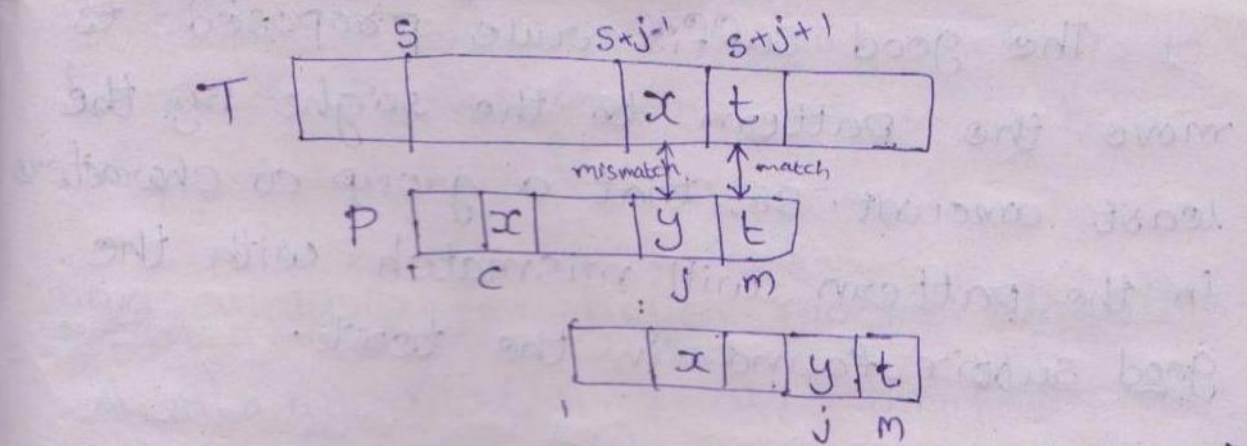 s s+j-1 s+j+1
T x t
mismatch match
P x y t
1 c j m
x y t
1 j m